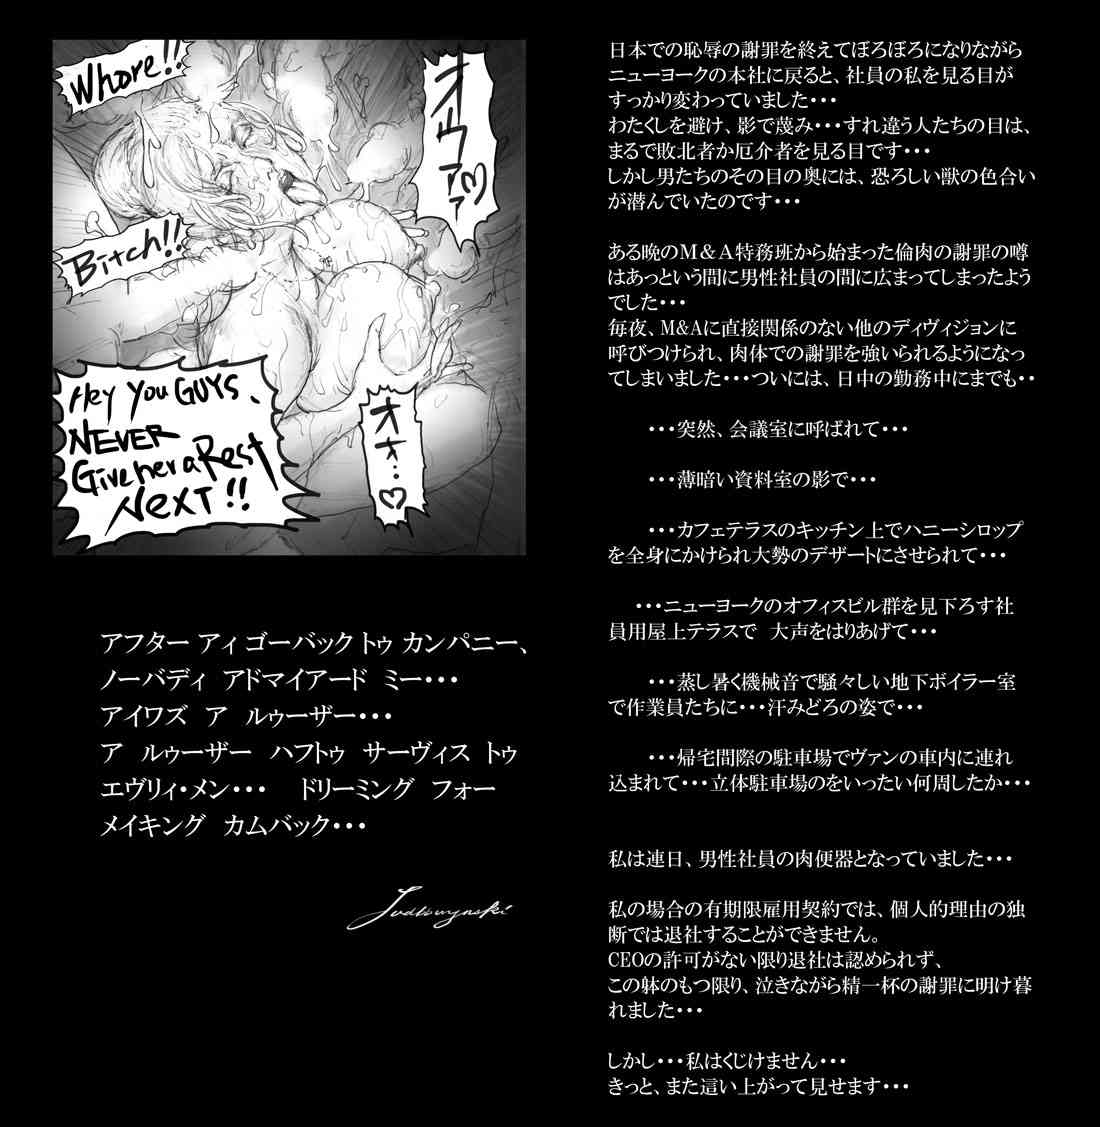 Whore!!
オウァァ♡
Bitch!!
オォ…♡
Hey You GUYS、
NEVER
Give her a Rest
NEXT!!
アフター アィ ゴーバック トゥ カンパニー、
ノーバディ アドマイアード ミー・・・
アイワズ ア ルゥーザー・・・
ア ルゥーザー ハフトゥ サーヴィス トゥ
エヴリィ・メン・・・ ドリーミング フォー
メイキング カムバック・・・
日本での恥辱の謝罪を終えてぼろぼろになりながら
ニューヨークの本社に戻ると、社員の私を見る目が
すっかり変わっていました・・・
わたくしを避け、影で蔑み・・・すれ違う人たちの目は、
まるで敗北者か厄介者を見る目です・・・
しかし男たちのその目の奥には、恐ろしい獣の色合い
が潜んでいたのです・・・
ある晩のM&A特務班から始まった倫肉の謝罪の噂
はあっという間に男性社員の間に広まってしまったよう
でした・・・
毎夜、M&Aに直接関係のない他のディヴィジョンに
呼びつけられ、肉体での謝罪を強いられるようになっ
てしまいました・・・ついには、日中の勤務中にまでも・・
・・・突然、会議室に呼ばれて・・・
・・・薄暗い資料室の影で・・・
・・・カフェテラスのキッチン上でハニーシロップ
を全身にかけられ大勢のデザートにさせられて・・・
・・・ニューヨークのオフィスビル群を見下ろす社
員用屋上テラスで 大声をはりあげて・・・
・・・蒸し暑く機械音で騒々しい地下ボイラー室
で作業員たちに・・・汗みどろの姿で・・・
・・・帰宅間際の駐車場でヴァンの車内に連れ
込まれて・・・立体駐車場のをいったい何周したか・・・
私は連日、男性社員の肉便器となっていました・・・
私の場合の有期限雇用契約では、個人的理由の独
断では退社することができません。
CEOの許可がない限り退社は認められず、
この躰のもつ限り、泣きながら精一杯の謝罪に明け暮
れました・・・
しかし・・・私はくじけません・・・
きっと、また這い上がって見せます・・・